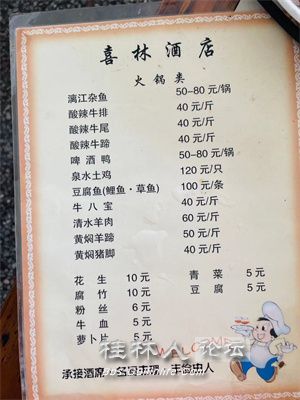 喜林酒店
火锅类
漓江杂鱼 50-80 元/锅
酸辣牛排 40 元/斤
酸辣牛尾 40 元/斤
酸辣牛蹄 40 元/斤
啤酒鸭 50-80 元/锅
泉水土鸡 120 元/只
豆腐鱼(鲤鱼·草鱼) 100 元/条
牛八宝 40 元/斤
清水羊肉 60 元/斤
黄焖羊蹄 50 元/斤
黄焖猪脚 40 元/斤
花生 10 元 青菜 5 元
腐竹 10 元 豆腐 5 元
粉丝 6 元
牛血 5 元
萝卜片 5 元
桂林人论坛
承接酒席